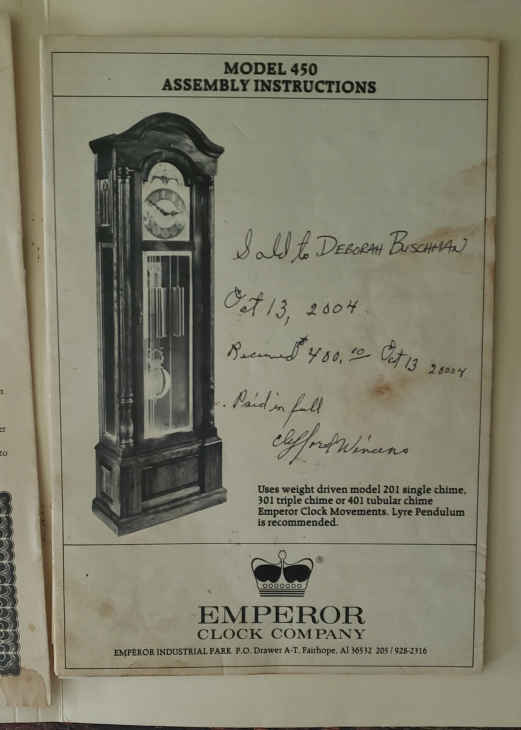 MODEL 450
ASSEMBLY INSTRUCTIONS
Sold to DEBORAH BUSCHMAN
Oct 13, 2004
Received $400.00 Oct 13 20004
Paid in full
Clifford
Uses weight driven model 201 single chime,
301 triple chime or 401 tubular chime
Emperor Clock Movements. Lyre Pendulum
is recommended.
®
EMPEROR
CLOCK COMPANY
EMPEROR INDUSTRIAL PARK P.O. Drawer A-T, Fairhope, Al 36532 205 / 928-2316
to